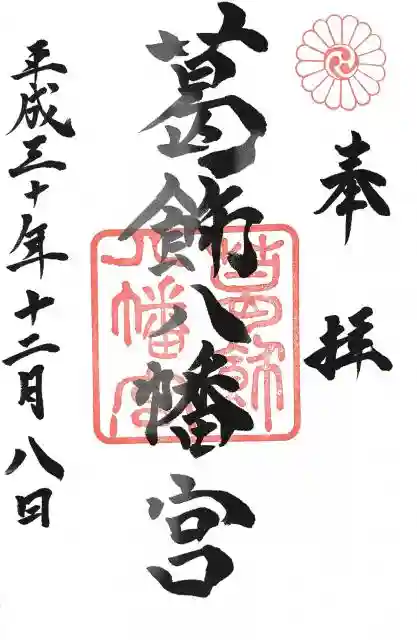 奉拝
葛飾八幡宮
葛飾
八幡宮
平成三十年十二月八日